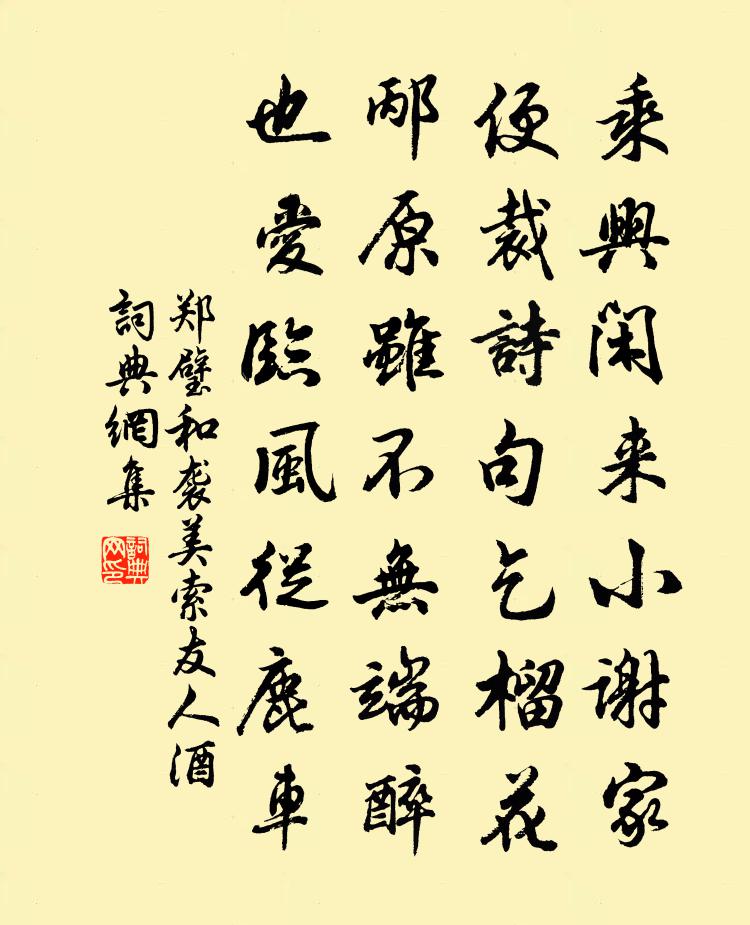 乘興闲来小谢家
便裁詩句乞榴花
邴原雖不無端醉
也愛臨風從鹿車
郑璧和袭美索友人酒
詞典網集
詞典网印